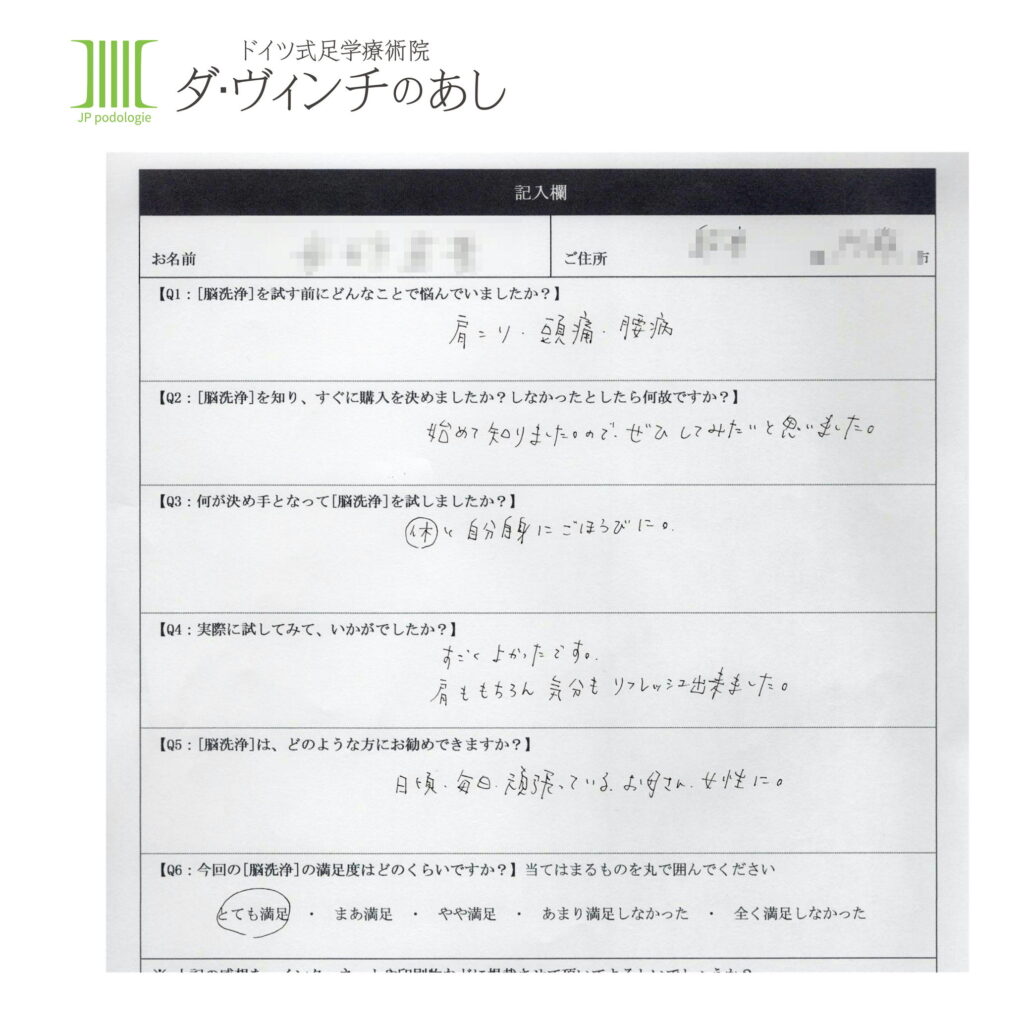 ドイツ式足学療術院
ダ・ヴィンチのあし
JP podologie
記入欄
お名前
ご住所
市
【Q1：[脳洗浄]を試す前にどんなことで悩んでいましたか？】
肩こり・頭痛・腰痛
【Q2：[脳洗浄]を知り、すぐに購入を決めましたか？しなかったとしたら何故ですか？】
始めて知りました。ので、ぜひしてみたいと思いました。
【Q3：何が決め手となって[脳洗浄]を試しましたか？】
休 自分自身にごほうびに。
【Q4：実際に試してみて、いかがでしたか？】
すごくよかったです。
肩ももちろん気分もリフレッシュ出来ました。
【Q5：[脳洗浄]は、どのような方にお勧めできますか？】
日頃、毎日、頑張っている、お母さん、女性に。
【Q6：今回の[脳洗浄]の満足度はどのくらいですか？】当てはまるものを丸で囲んでください
とても満足 ・ まあ満足 ・ やや満足 ・ あまり満足しなかった ・ 全く満足しなかった